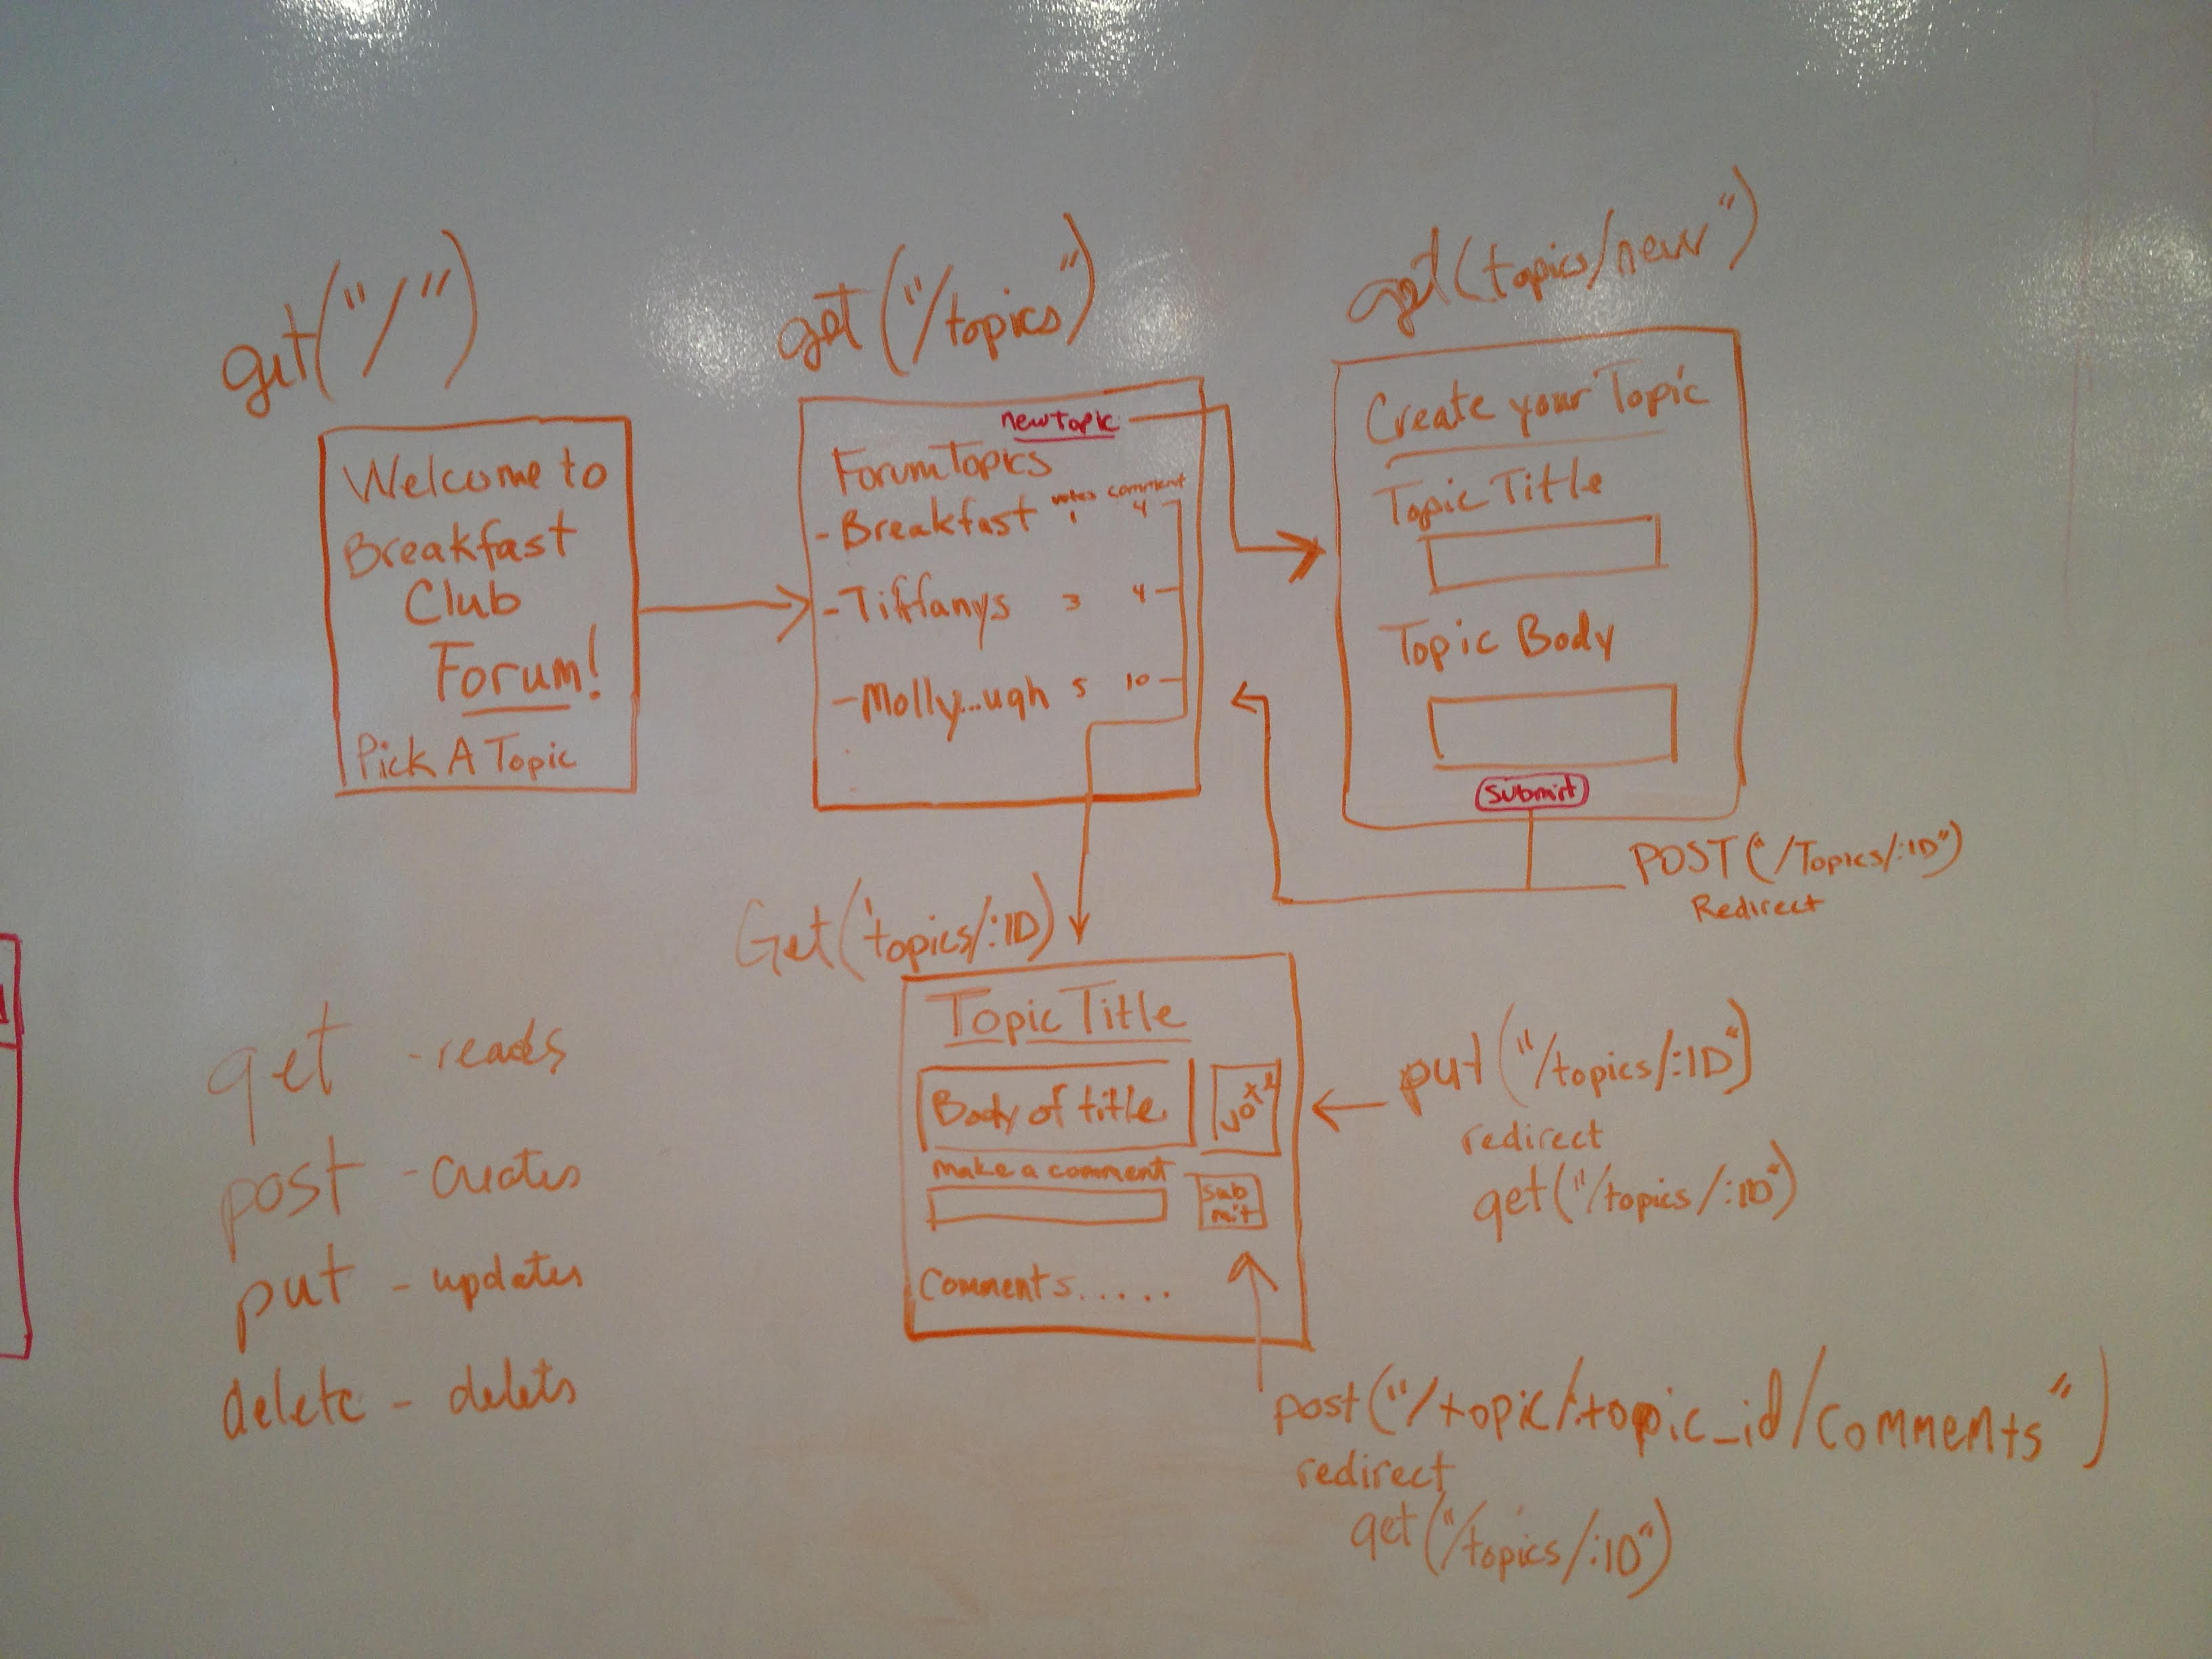 get("/")
Welcome to
Breakfast
Club
Forum!
Pick A Topic
get ("/topics")
new topic
Forum Topics
votes comment
- Breakfast 1 4
- Tiffanys 3 4
- Molly...ugh 5 10
get(topics/new")
Create your Topic
Topic Title
Topic Body
submit
POST("/Topics/:ID")
Redirect
Get('topics/:ID)
Topic Title
Body of title
make a comment
sub
mit
Comments.....
put("/topics/:ID")
redirect
get("/topics/:ID")
post("/topic/:topic_id/comments")
redirect
get("/topics/:ID")
get - reads
post - creates
put - updates
delete - delets